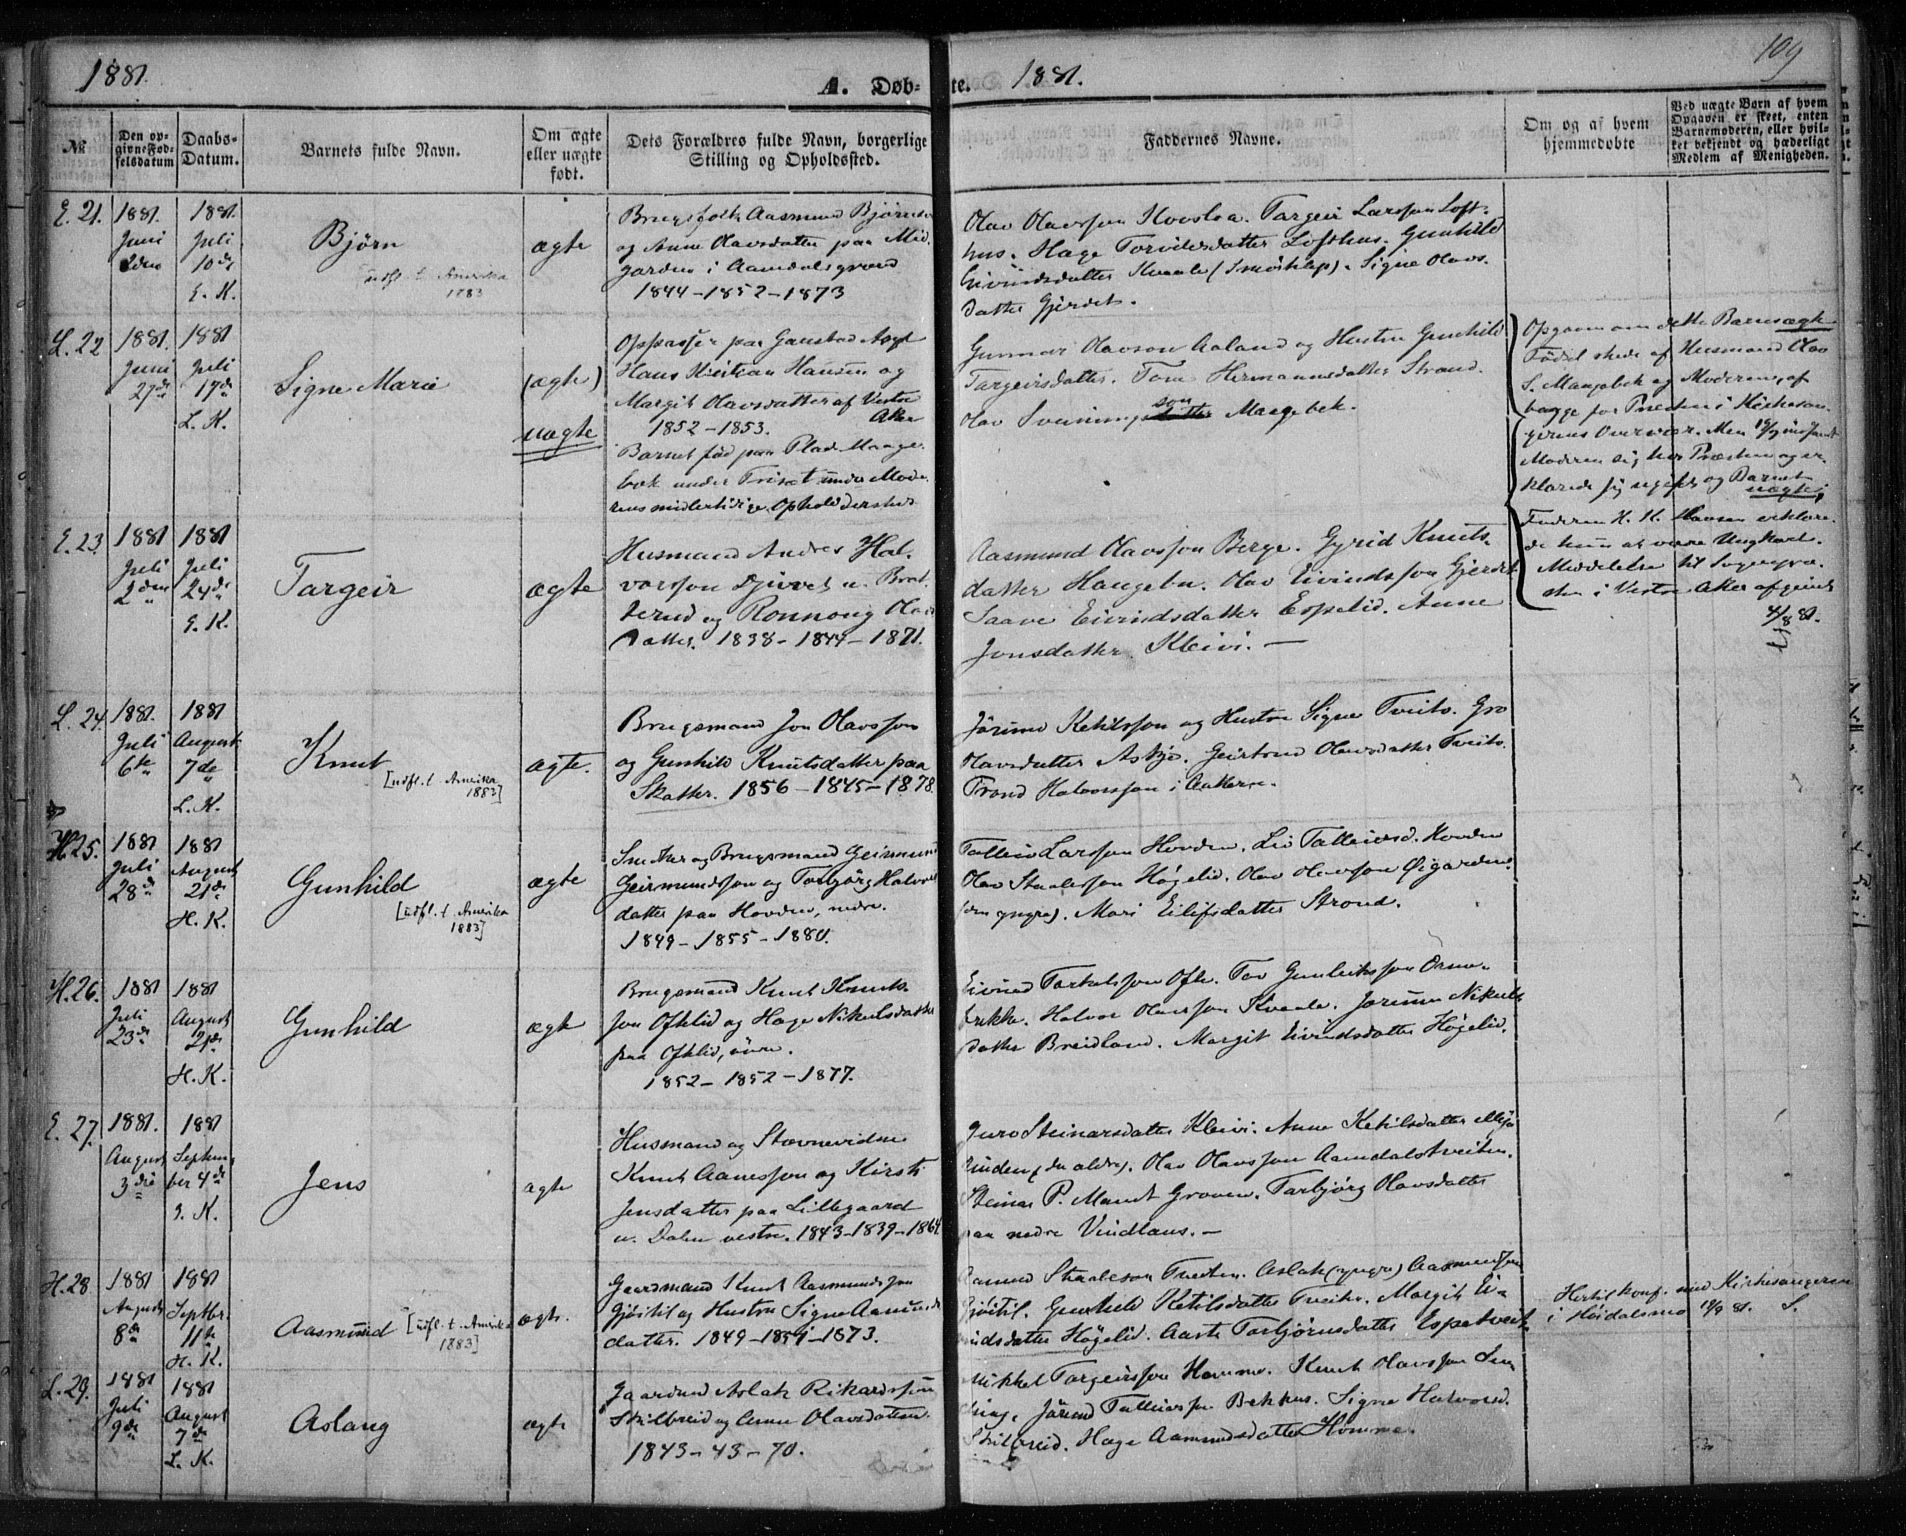 1881.
A. Døb-
te.
1881.
109
No
Den op-
givne Fød-
selsdatum
Daabs-
Datum.
Barnets fulde Navn.
Om ægte
eller uægte
født.
Dets Forældres fulde Navn, borgerlige
Stilling og Opholdssted.
Faddernes Navne.
Om og af hvem
hjemmedøbte
Ved uægte Barn af hvem
Opgaven er skeet, enten
Barnemoderen, eller hvil-
ket bekjendt og hæderligt
Medlem af Menigheden.
E. 21.
1881.
Juni
1881.
Juli
10de
E. K.
Bjørn
udfl. t. Amerika
1883
ægte
Brugsfolk Aasmund
og Anne Olavsdatter paa Mid-
garden i Aamdalsgrend
1844-1852-1873
Olav Olavsson Hovsloa. Targeir Larsson Loft-
hus. Hæge Torvildsdatter Lofthus. Gunhild
Eivindsdatter Kvaale (Smørklep). Signe Olavs-
datter Gjerdet.
L. 22
1881.
Juni
27de
1881
Juli
17de
L. K.
Signe Marie
(ægte)
uægte
Oppasser paa Gaustad Asyl
Hans Kristian Hansen og
Margit Olavsdatter af Vestre
Aker
1852-1853.
Barnet fød paa Plads Maage-
bæk under Triset under Mode-
rens midlertidige Ophold dersteds
Gunnar Olavson Aaland og Hustru Gunhild
Targeirsdatter. Tone Hermannsdatter Strand.
Olav Sveinungsson Maagebek.
Opgaven om dette Barns ægte
Fødsel skede af Husmand Olav
S. Maagebek og Moderen, af
begge for Præsten i Kirkesan-
gerens Overvær. Men
Moderen sig hos Præsten og er-
klærede sig ugift og Barnet
uægte;
Faderen H. K. Hansen erklære-
de hun at være Ungkarl.
Meddelelse til Sognepræ-
sten i Vestre Aker afgivet
4/8 81.
E. 23.
1881
Juli
2den
1881
Juli
24de
E. K.
Targeir
ægte
Husmand Andres Hal-
vorsson Djuvet u. Brat-
terud og Rønnong Olavs-
datter. 1838-1844-1871.
Aasmund Olavsson Berge. Gyrid Knuts-
datter Haugebn. Olav Eivindsson Gjerdet
Saave Eivindsdatter Espelid. Anne
Jonsdatter Kleivi. —
L. 24.
1881.
Juli
6te
1881
August
7de
L. K.
Knut
[udfl. t. Amerika
1883]
ægte.
Brugsmand Jon Olavsson
og Gunhild Knutsdatter paa
Skatter. 1856-1845-1878.
Jørund Ketilsson og Hustru Signe Tveito. Gro
Olavsdatter Askje. Geirtrud Olavsdatter Tveito.
Trond Halvorsson i Aakeren.
H. 25.
1881
Juli
28de
1881
August
21de
H. K.
Gunhild
[udfl. t. Amerika
1883]
ægte
Snekker og Brugsmand Geirmund
Geirmundsson og Torbjørg Halvors-
datter paa Hovden, nedre.
1849-1855-1880.
Talleiv Larsson Hovden. Liv Talleivsd. Hovden
Olav Staalesson Høgelid. Olav Olavsson Øigarden
(den yngre). Mari Eilifsdatter Strond.
H. 26.
1881
Juli
23de
1881
August
21de
H. K.
Gunhild
ægte
Brugsmand Knut Knuts-
son Oftelid og Hæge Nikulsdatter
paa Oftelid, øvre.
1852-1852-1877.
Eivind Torkelsson Ofte. Tov Gunleiksson Orme-
brekke. Halvor Olavsson Kvaale. Jorunn Nikuls-
datter Breidland. Margit Eivindsdatter Høgelid.
E. 27.
1881.
August
3die
1881
Septem-
ber 4de
E. K.
Jens
ægte
Husmand og Stævnevidne
Knut Aanesson og Kirsti
Jensdatter paa Lillegaard
u. Dalen vestre. 1843-1839-1864.
Guro Steinarsdatter Kleivi. Anne Ketilsdatter
(den ældre). Olav Olavsson Aamdalstveiten.
Steinar P. Mandt Groven. Torbjørg Olavsdatter
paa nedre Vindlaus. —
H. 28
1881
August
8de
1881
Septbr.
11te
H. K.
Aasmund
[udfl. t. Amerika
1883]
ægte.
Gaardmand Knut Aasmundsson
Gjøitil og Hustru Signe Aanunds-
datter. 1849-1854-1873.
Aanund Staaleson Tveiten. Aslak (yngre) Aasmundsson
Gjøitil. Gunhild Ketilsdatter Tveito. Margit Ei-
vindsdatter Høgelid. Aaste Torbjørnsdatter Espetveit
Hertil konf. med Kirkesangeren
i Høidalsmo 11/9 81. S.
L. 29.
1881
Juli
9de
1881
August
7de
L. K.
Aslaug
ægte
Gaardmd Aslak Rikardsson
Skilbreid og Anne Olavsdatter.
1843-43-70.
Mikkel Targeirsson Homme. Knut Olavsson
Jørund Talleivsson Bakhus. Signe Halvorsd.
Skilbreid. Hæge Aamundsdatter Homme.